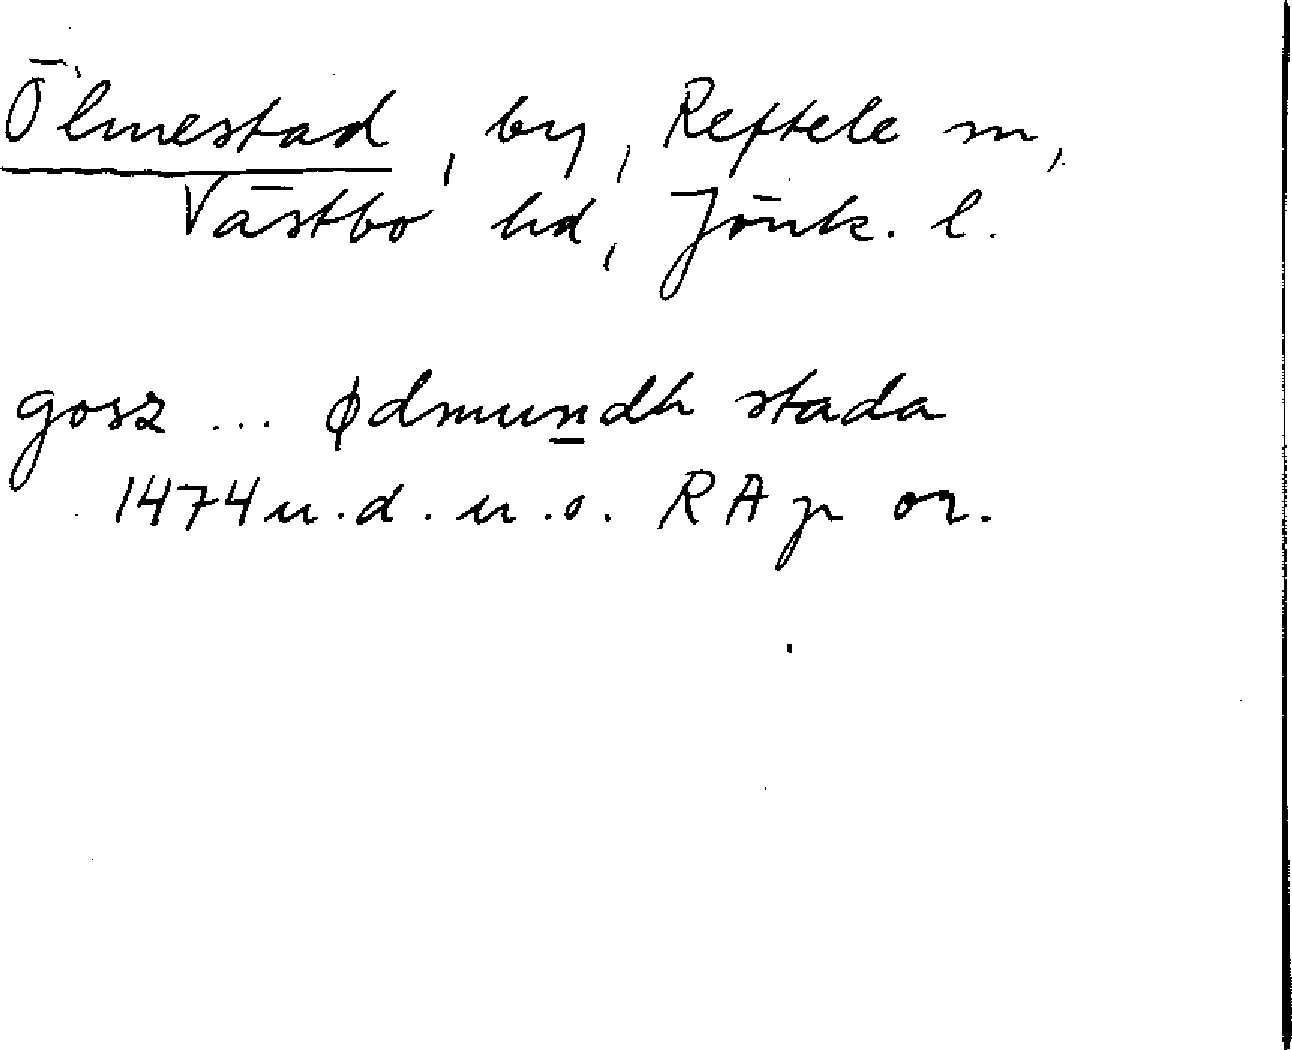 Ölmestad, by, Reftele sn,
Västbo hd, Jönk. l.
gosz ... ødmundh stada
1474 u.d. u.o. RAp or.